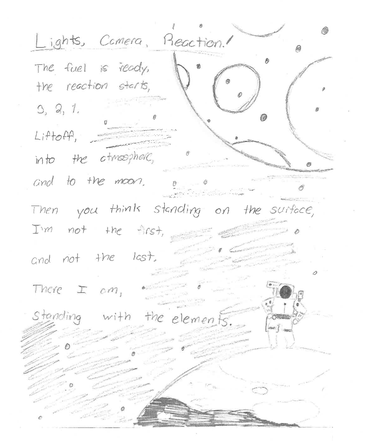 Lights, Camera, Reaction!
The fuel is ready,
the reaction starts,
3, 2, 1.
Liftoff,
into the atmosphere,
and to the moon.
Then you think standing on the surface,
I'm not the first,
and not the last.
There I am,
Standing with the elements.